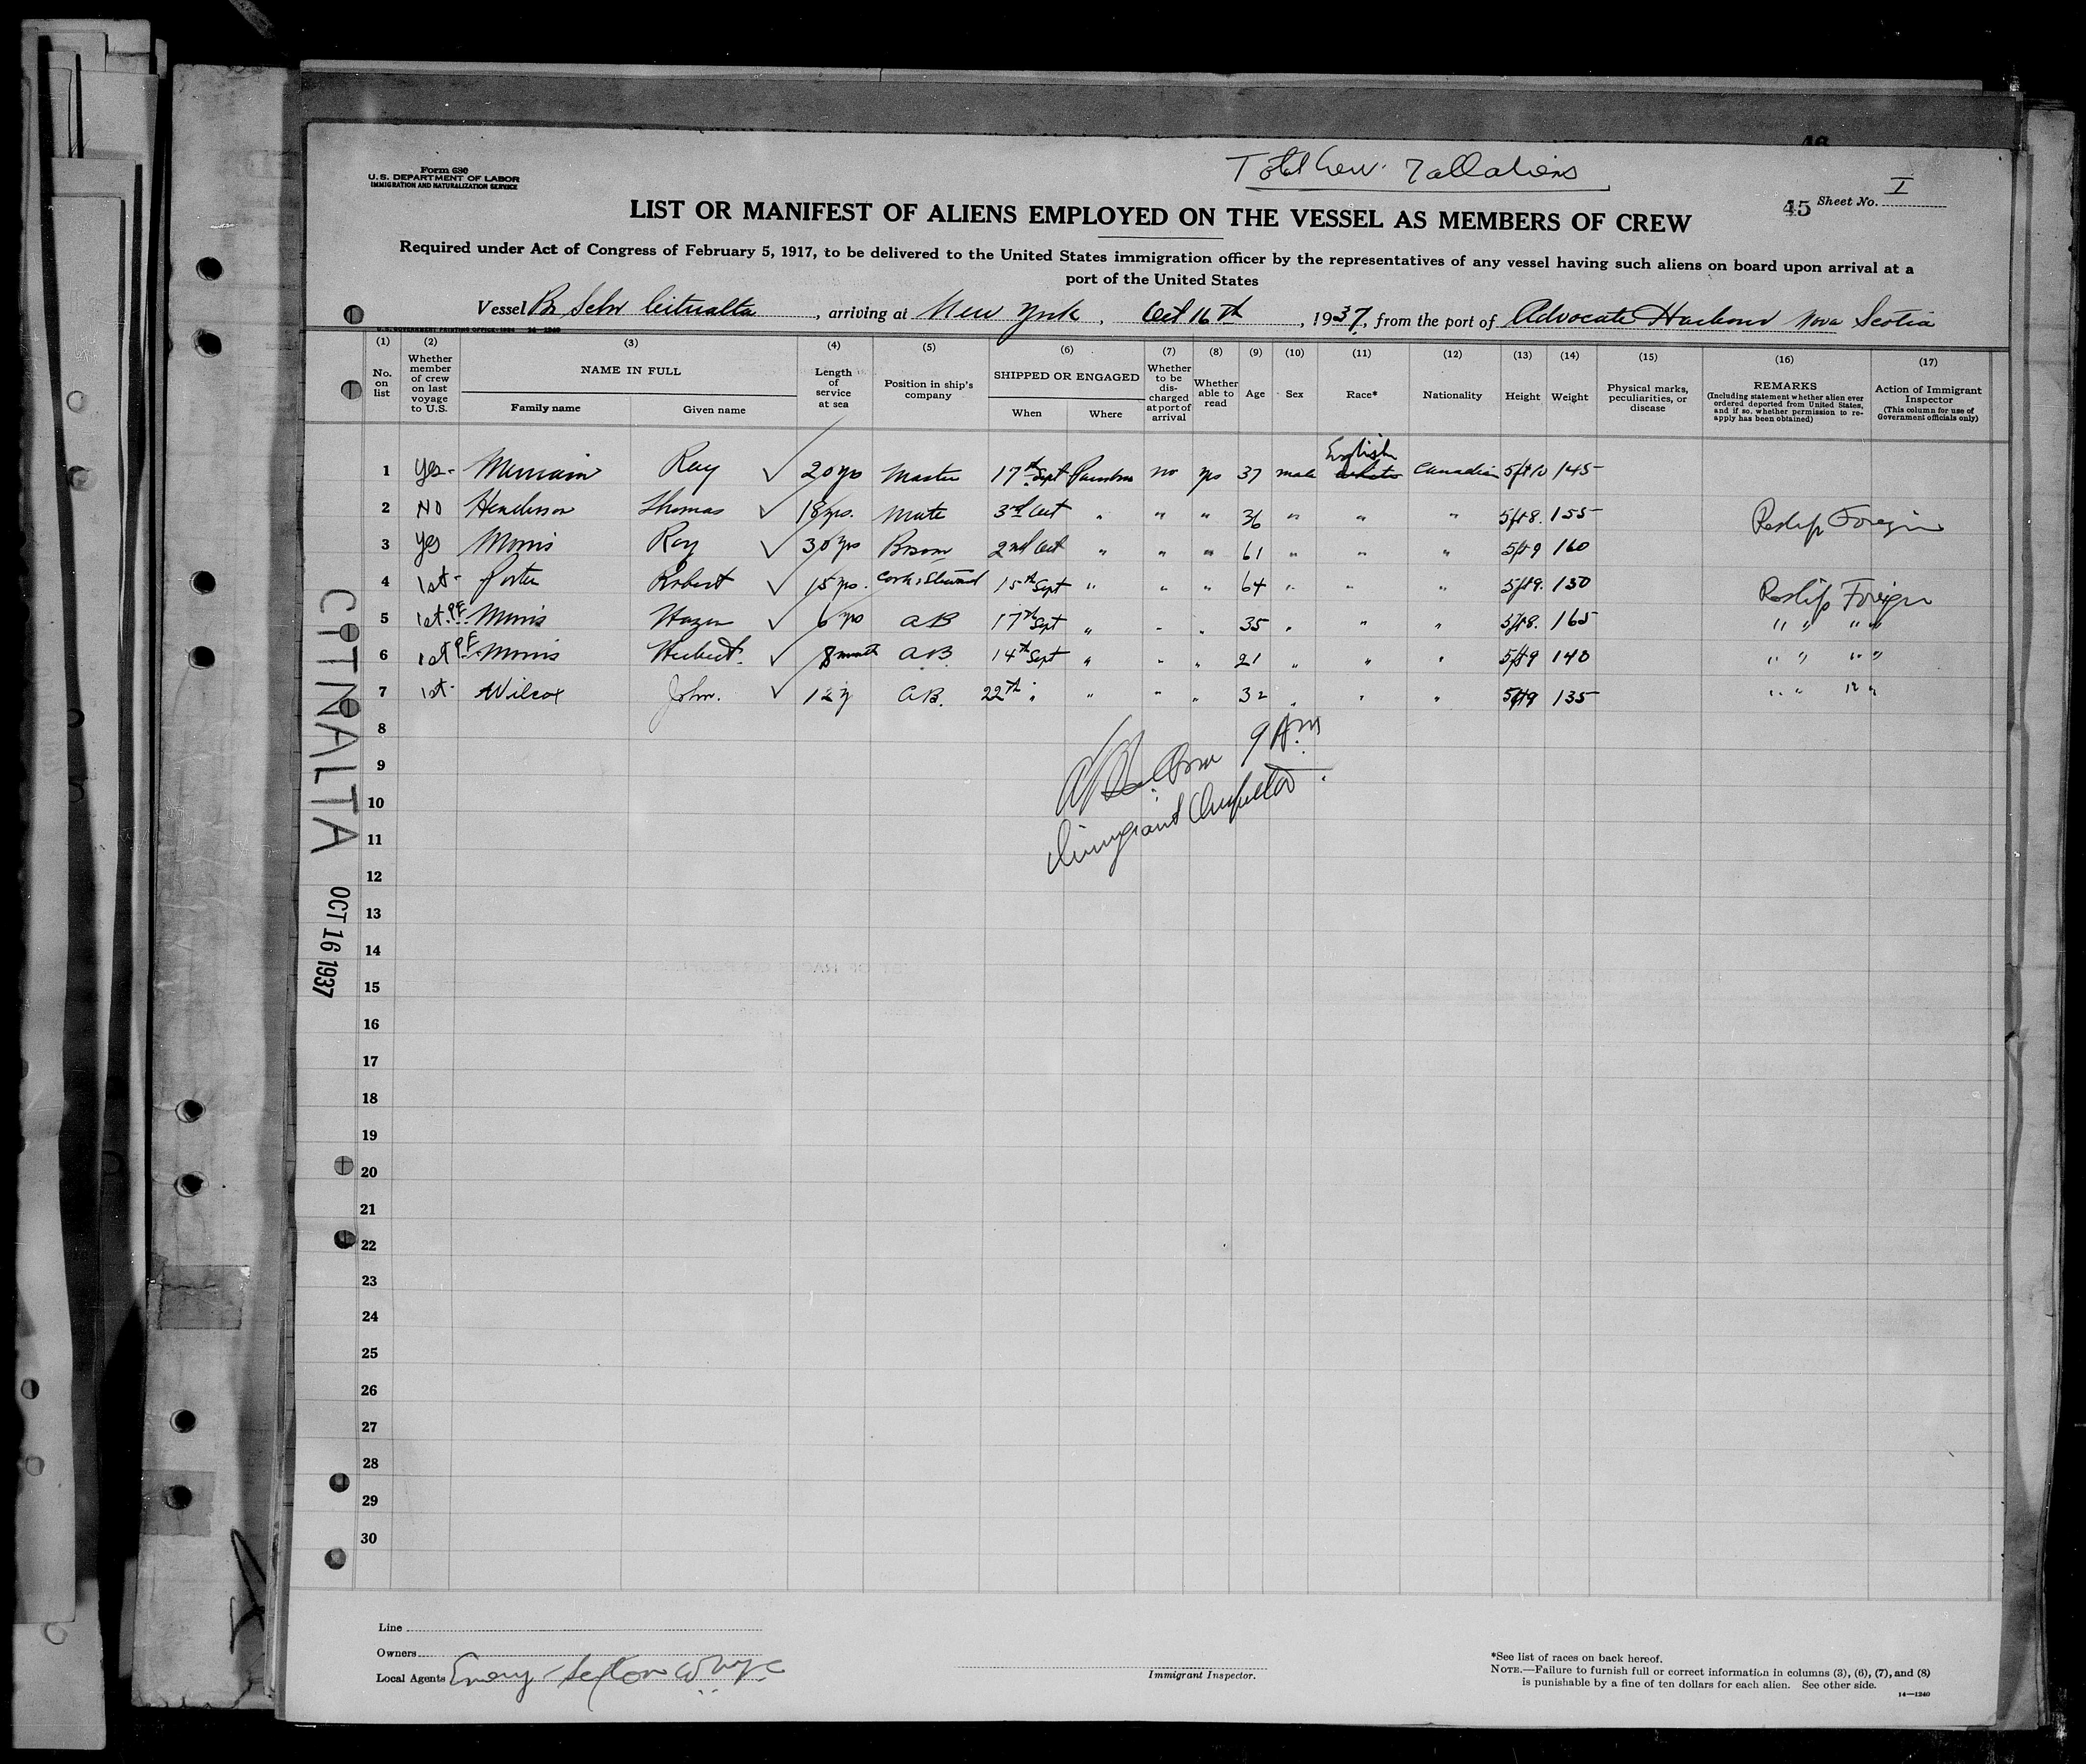 Form 680
U.S. DEPARTMENT OF LABOR
IMMIGRATION AND NATURALIZATION SERVICE
Total Crew. 7 all aliens
45 Sheet No. I
LIST OR MANIFEST OF ALIENS EMPLOYED ON THE VESSEL AS MEMBERS OF CREW
Required under Act of Congress of February 5, 1917, to be delivered to the United States immigration officer by the representatives of any vessel having such aliens on board upon arrival at a
port of the United States
Vessel Br Schr Citnalta, arriving at New York, Oct 16th, 1937, from the port of Advocate Harbour Nova Scotia
U.S. GOVERNMENT PRINTING OFFICE
(1) (2) (3) (4) (5) (6) (7) (8) (9) (10) (11) (12) (13) (14) (15) (16) (17)
No. on list
Whether member of crew on last voyage to U.S.
NAME IN FULL
Family name
Given name
Length of service at sea
Position in ship's company
SHIPPED OR ENGAGED
When
Where
Whether to be discharged at port of arrival
Whether able to read
Age
Sex
Race*
Nationality
Height
Weight
Physical marks, peculiarities, or disease
REMARKS
(Including statement whether alien ever ordered deported from United States, and if so, whether permission to reapply has been obtained)
Action of Immigrant Inspector
(This column for use of Government officials only)
English
1 Yes- Ray 20 yrs Master 17th Sept no yes 37 male white Canadian 5ft10 145
2 NO Henderson Thomas 18 yrs. Mate 3rd Oct " " " 36 " " " 5ft8. 155 Reship Foreign
3 Yes Morris Roy 30 yrs Bosom 2nd Oct " " " 61 " " " 5ft9 160
4 1st- Porter Robert 15 yrs. Cook & Steward 15th Sept " " " 64 " " " 5ft9. 150 Reship Foreign
5 1st. P.E. Morris Hazen 6 yrs AB 17th Sept " " " 35 " " " 5ft8. 165 " " " "
6 1st P.E. Morris Herbert. 8 month A.B. 14th Sept " " " 21 " " " 5ft9 140 " " " "
7 1st- Wilcox John. 12 y A.B. 22th " " " " 32 " " " 5ft9 135 " " " "
8
9
10
11
12
13
14
15
16
17
18
19
20
21
22
23
24
25
26
27
28
29
30
9 Am
Immigrant Inspector
CITNALTA OCT 16 1937
Line
Owners
Local Agents
Immigrant Inspector.
*See list of races on back hereof.
NOTE.—Failure to furnish full or correct information in columns (3), (6), (7), and (8)
is punishable by a fine of ten dollars for each alien. See other side.
14—1240